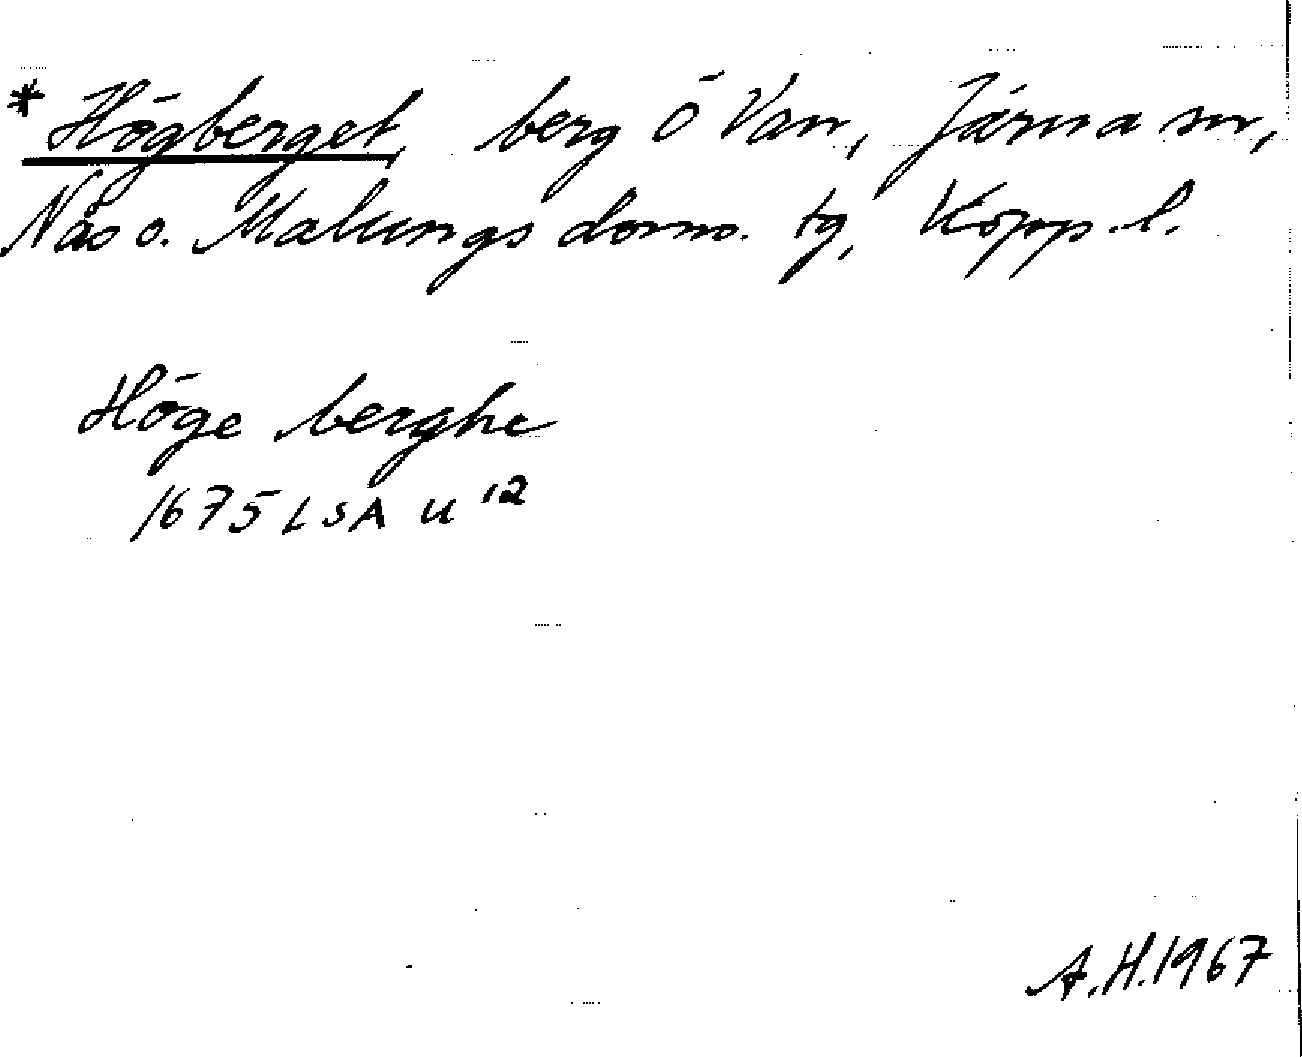 * Högberget, berg Ö Van, Järna sn,
Nås o. Malungs doms. tg, Kopp. l.
Höge berghe
1675 LSA U 12
A.H. 1967